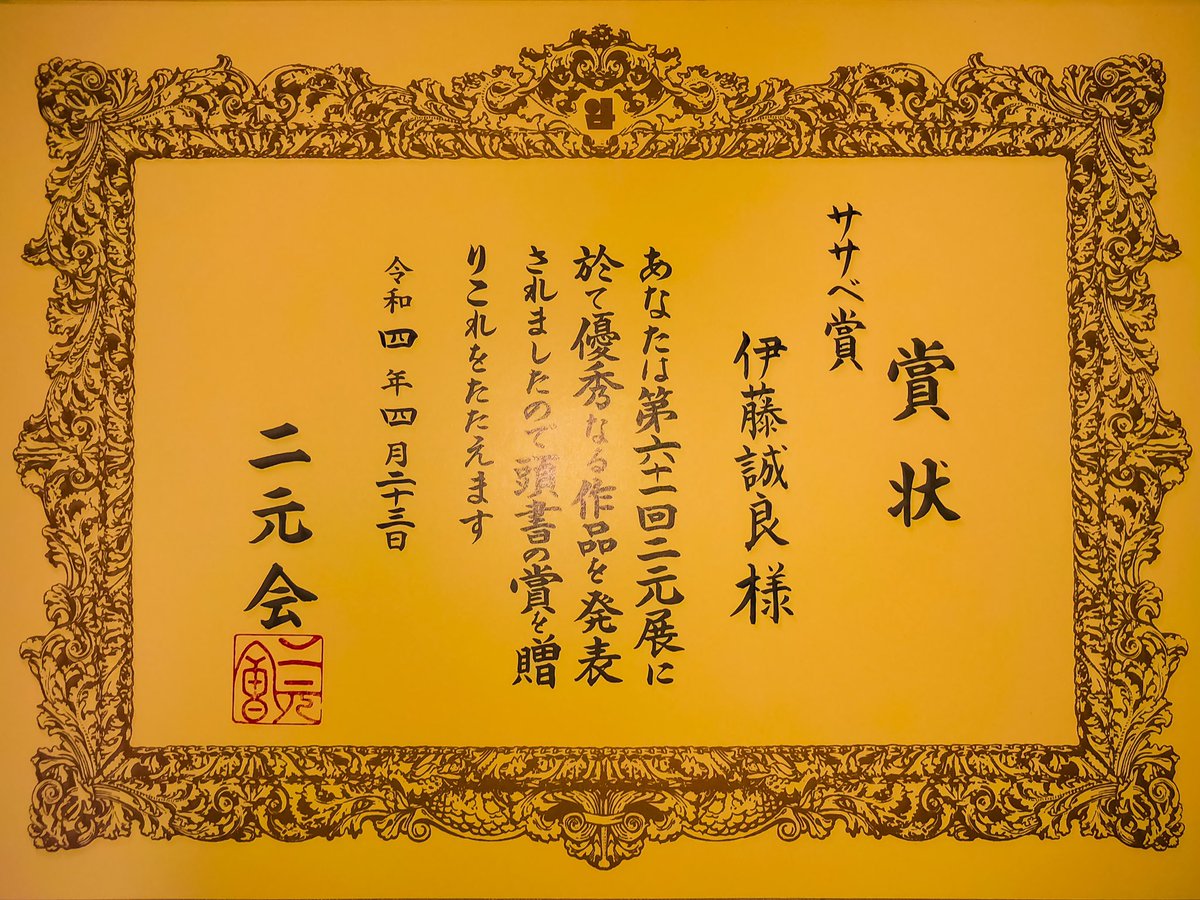 賞状
ササベ賞
伊藤誠良様
あなたは第六十一回二元展に
於て優秀なる作品を発表
されましたので頭書の賞を贈
りこれをたたえます
令和四年四月二十三日
二元会
二元會